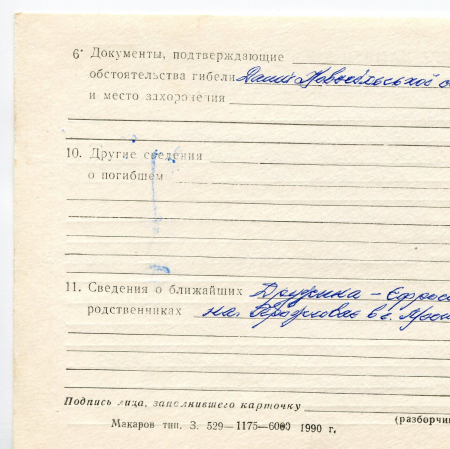 6. Документы, подтверждающие
обстоятельства гибели Дані Новосільської
и место захоронения
10. Другие сведения
о погибшем
11. Сведения о ближайших Дружина - Єфрос
родственниках на. Проживає в с.
Подпись лица, заполнившего карточку
(разборчи
Макаров тип. З. 529—1175—6000 1990 г.